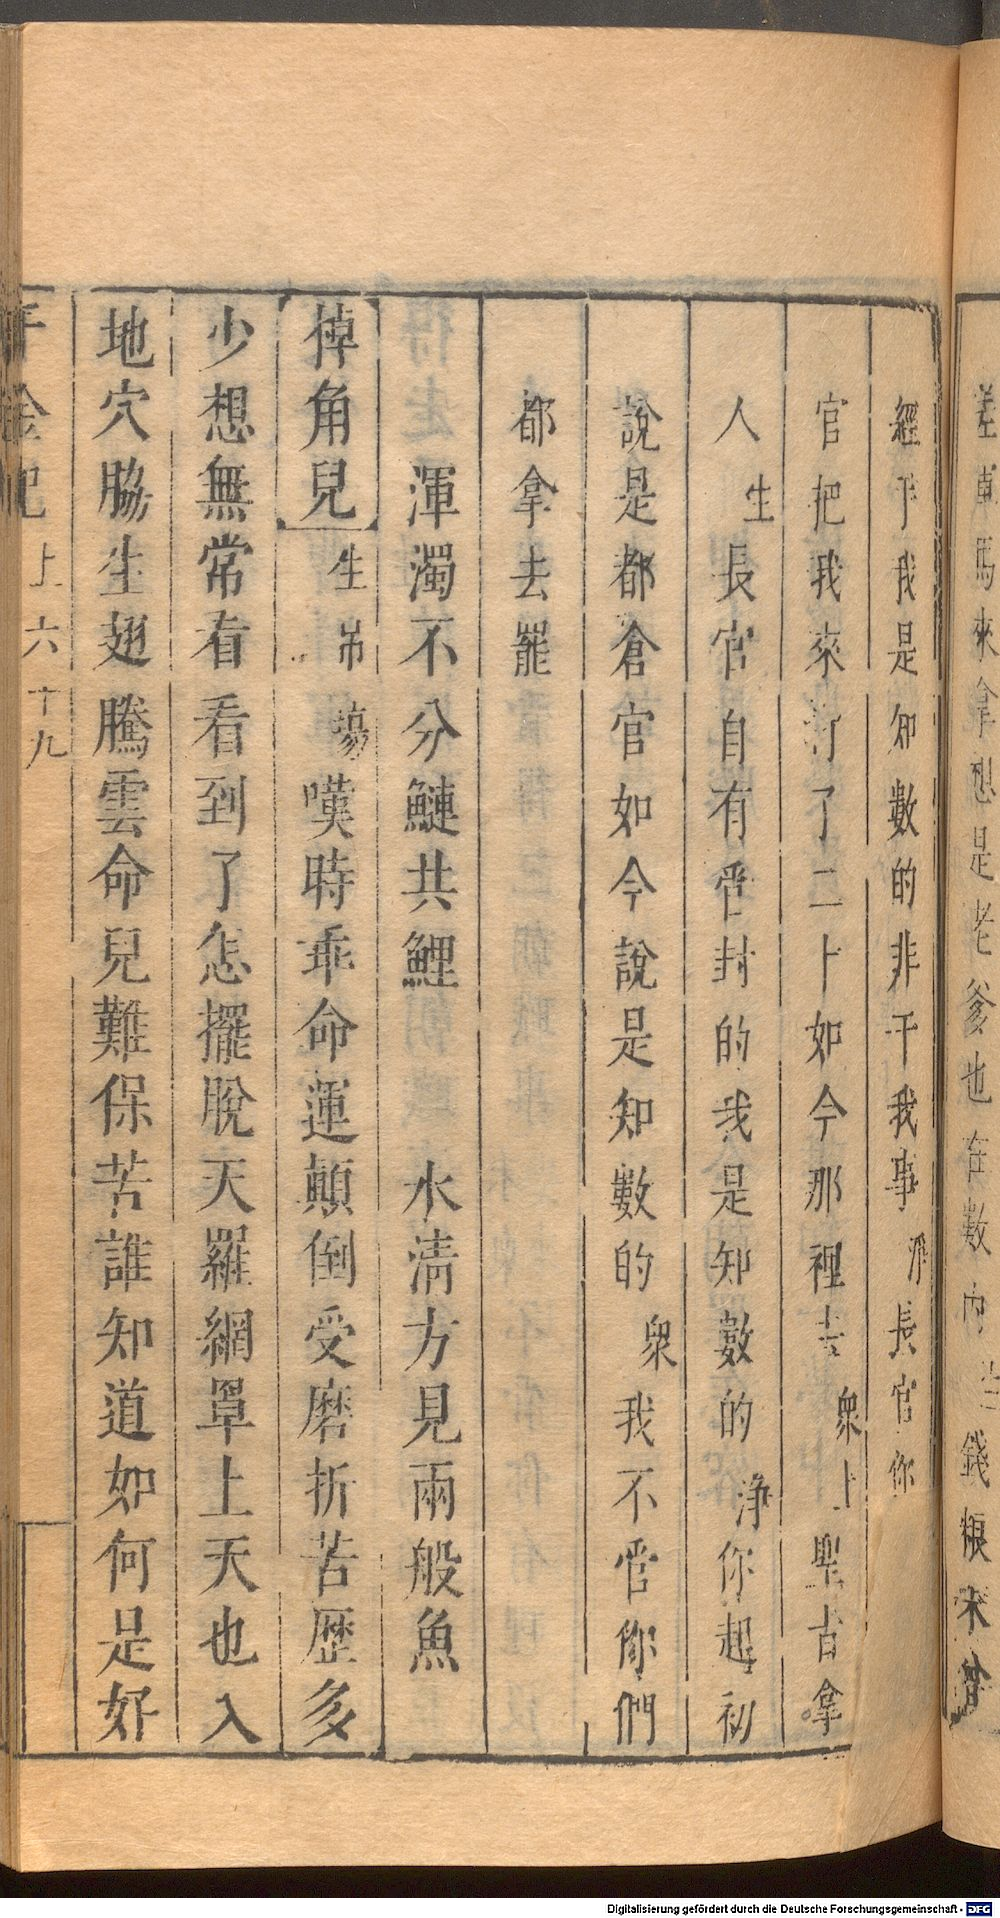 差車馬來拿想是老爹也在數內 錢糧未曾
經手我是知數的非干我事 淨長官你
官把我來打了二十如今那裡去 衆上聖旨拿
人 生長官自有管封的我是知數的 淨你起初
說是都倉官如今說是知數的 衆我不管你們
都拿去罷
渾濁不分鰱共鯉 水清方見兩般魚
掉角兒 生吊場嘆時乖命運顛倒受磨折苦歷多
少想無常看看到了怎擺脫天羅網罩上天也入
地穴脇生翅騰雲命兒難保苦誰知道如何是好
千金記 上 六 十九
Digitalisierung gefördert durch die Deutsche Forschungsgemeinschaft - DFG